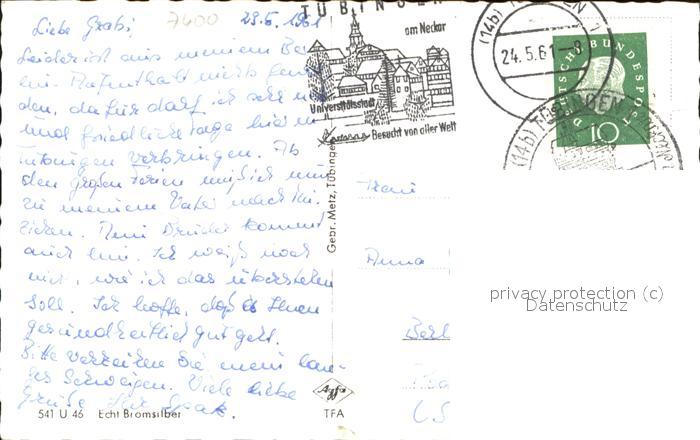 7400 23.5.1961
Liebe Grabi,
Leider ist aus meinem
ein Aufenthalt nichts
den, dafür darf ich sehr
und friedliche Tage hier in
Tübingen verbringen. Ab
den großen Ferien muß ich nun
zu meinem Vater nach
ziehen. Mein Bruder kommt
auch hin. Ich weiß noch
nicht, wie ich das überstehen
soll. Ich hoffe, daß es Ihnen
gesundheitlich gut geht.
Bitte verzeihen Sie mein lan-
ges Schweigen. Viele liebe
Grüße Ihr
541 U 46 Echt Bromsilber
Gebr. Metz, Tübingen
Agfa
TFA
TÜBINGEN
am Neckar
Universitätsstadt
Besucht von aller Welt
(14b) TÜBINGEN 1
24.5.61-8
DEUTSCHE BUNDESPOST
10
(14b) TÜBINGEN
Frau
Anna
Berl
privacy protection (c)
Datenschutz